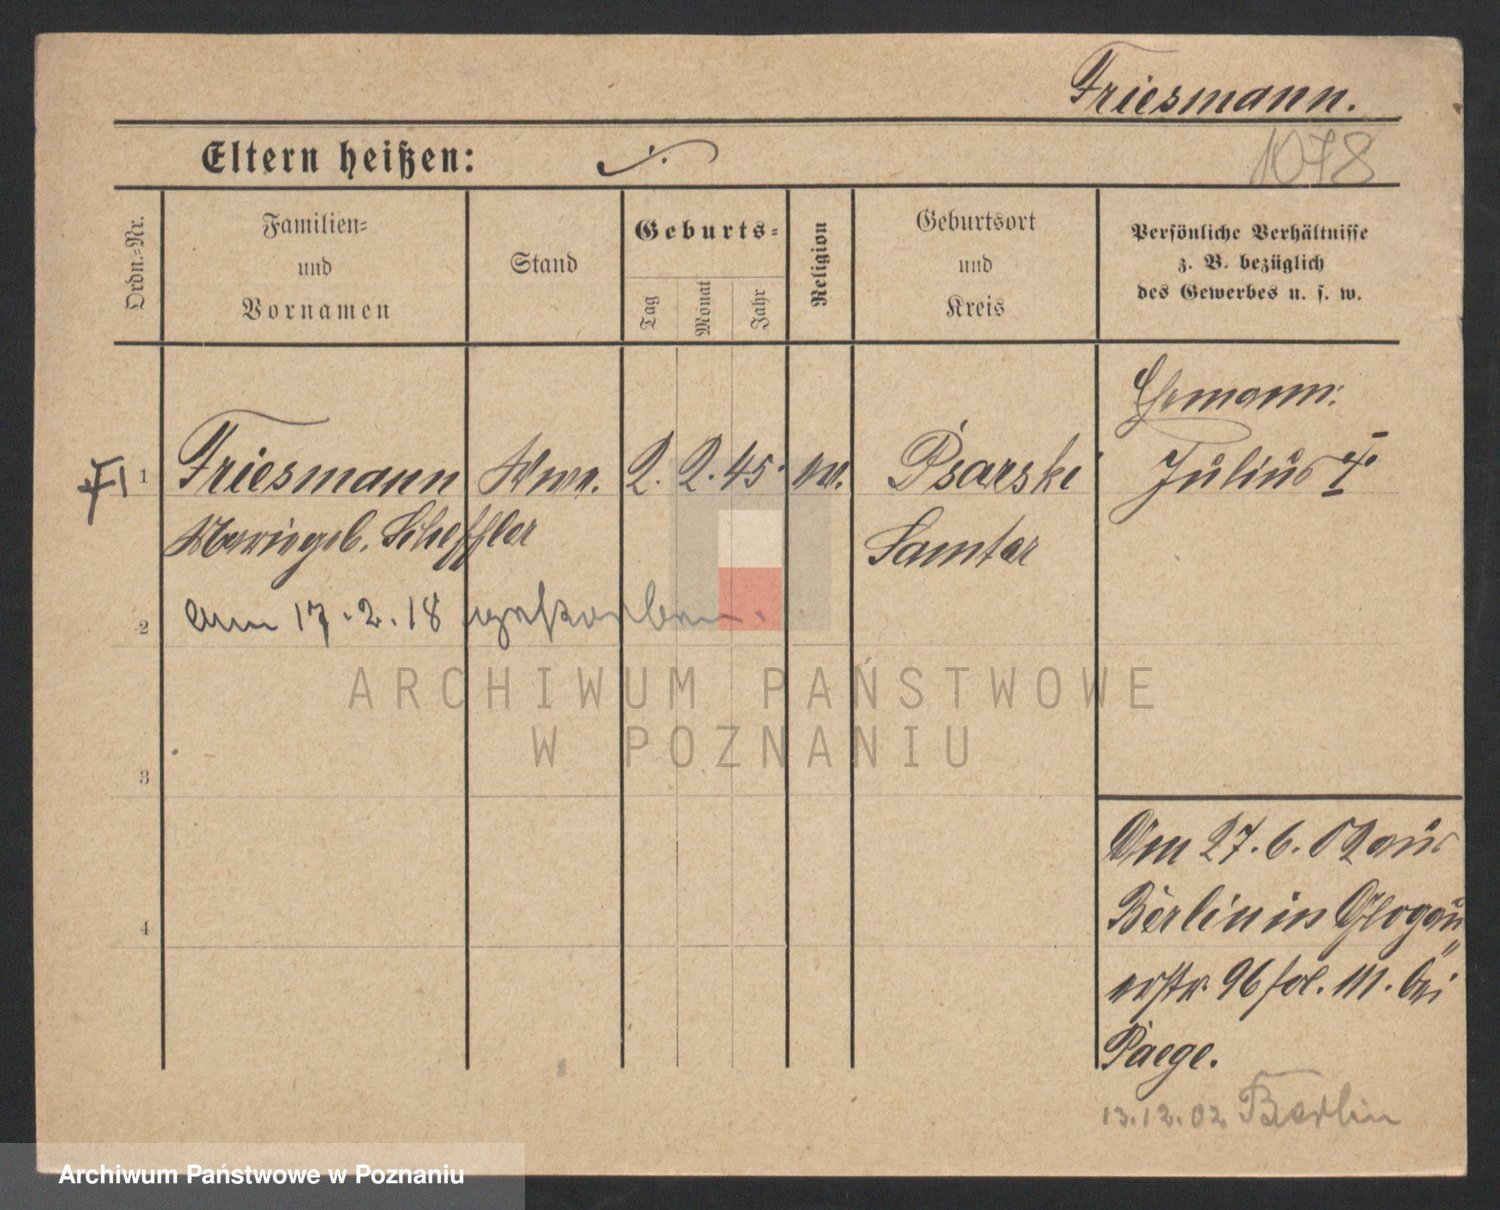 Friesmann.
1078
Eltern heißen: ./.
Ordn.-Nr.
Familien-
und
Vornamen
Stand
Geburts-
Tag
Monat
Jahr
Religion
Geburtsort
und
Kreis
Persönliche Verhältnisse
z. B. bezüglich
des Gewerbes u. s. w.
Ehemann:
1 Friesmann Wwe. 2. 2. 45. ev. Psarski Julius †
Marie geb. Scheffler Samter
2 am 17.2.18 gestorben.
ARCHIWUM PAŃSTWOWE
W POZNANIU
3
Am 27.6.02 aus
4 Berlin in Glogau
erstr. 96 bei
Paege.
13.12.02 Berlin
Archiwum Państwowe w Poznaniu